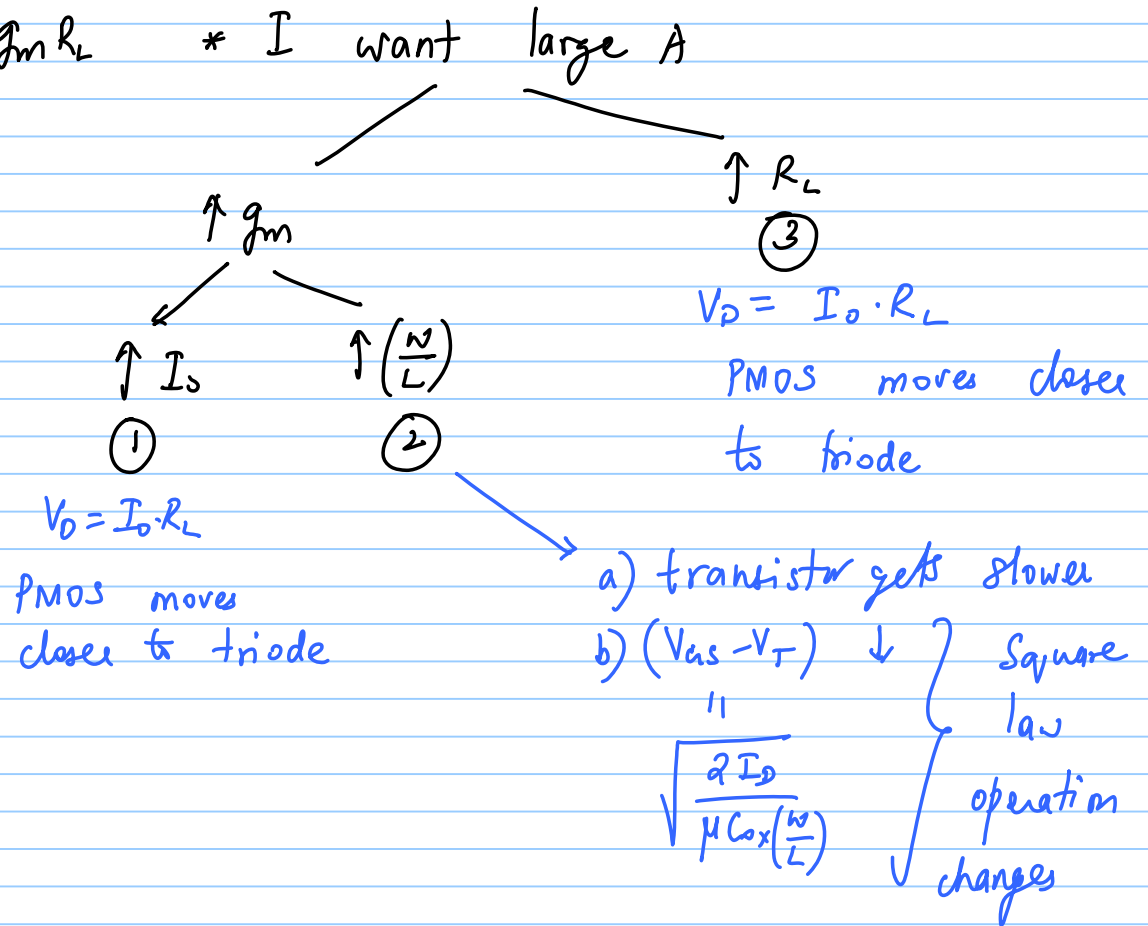 gm RL * I want large A
↑ gm
↑ RL
③
↑ ID
①
↑ (W/L)
②
VD = ID · RL
PMOS moves closer
to triode
VD = ID · RL
PMOS moves
closer to triode
a) transistor gets slower
b) (VGS - VT) ↓
"
√(2 ID / μ Cox (W/L))
Square
law
operation
changes